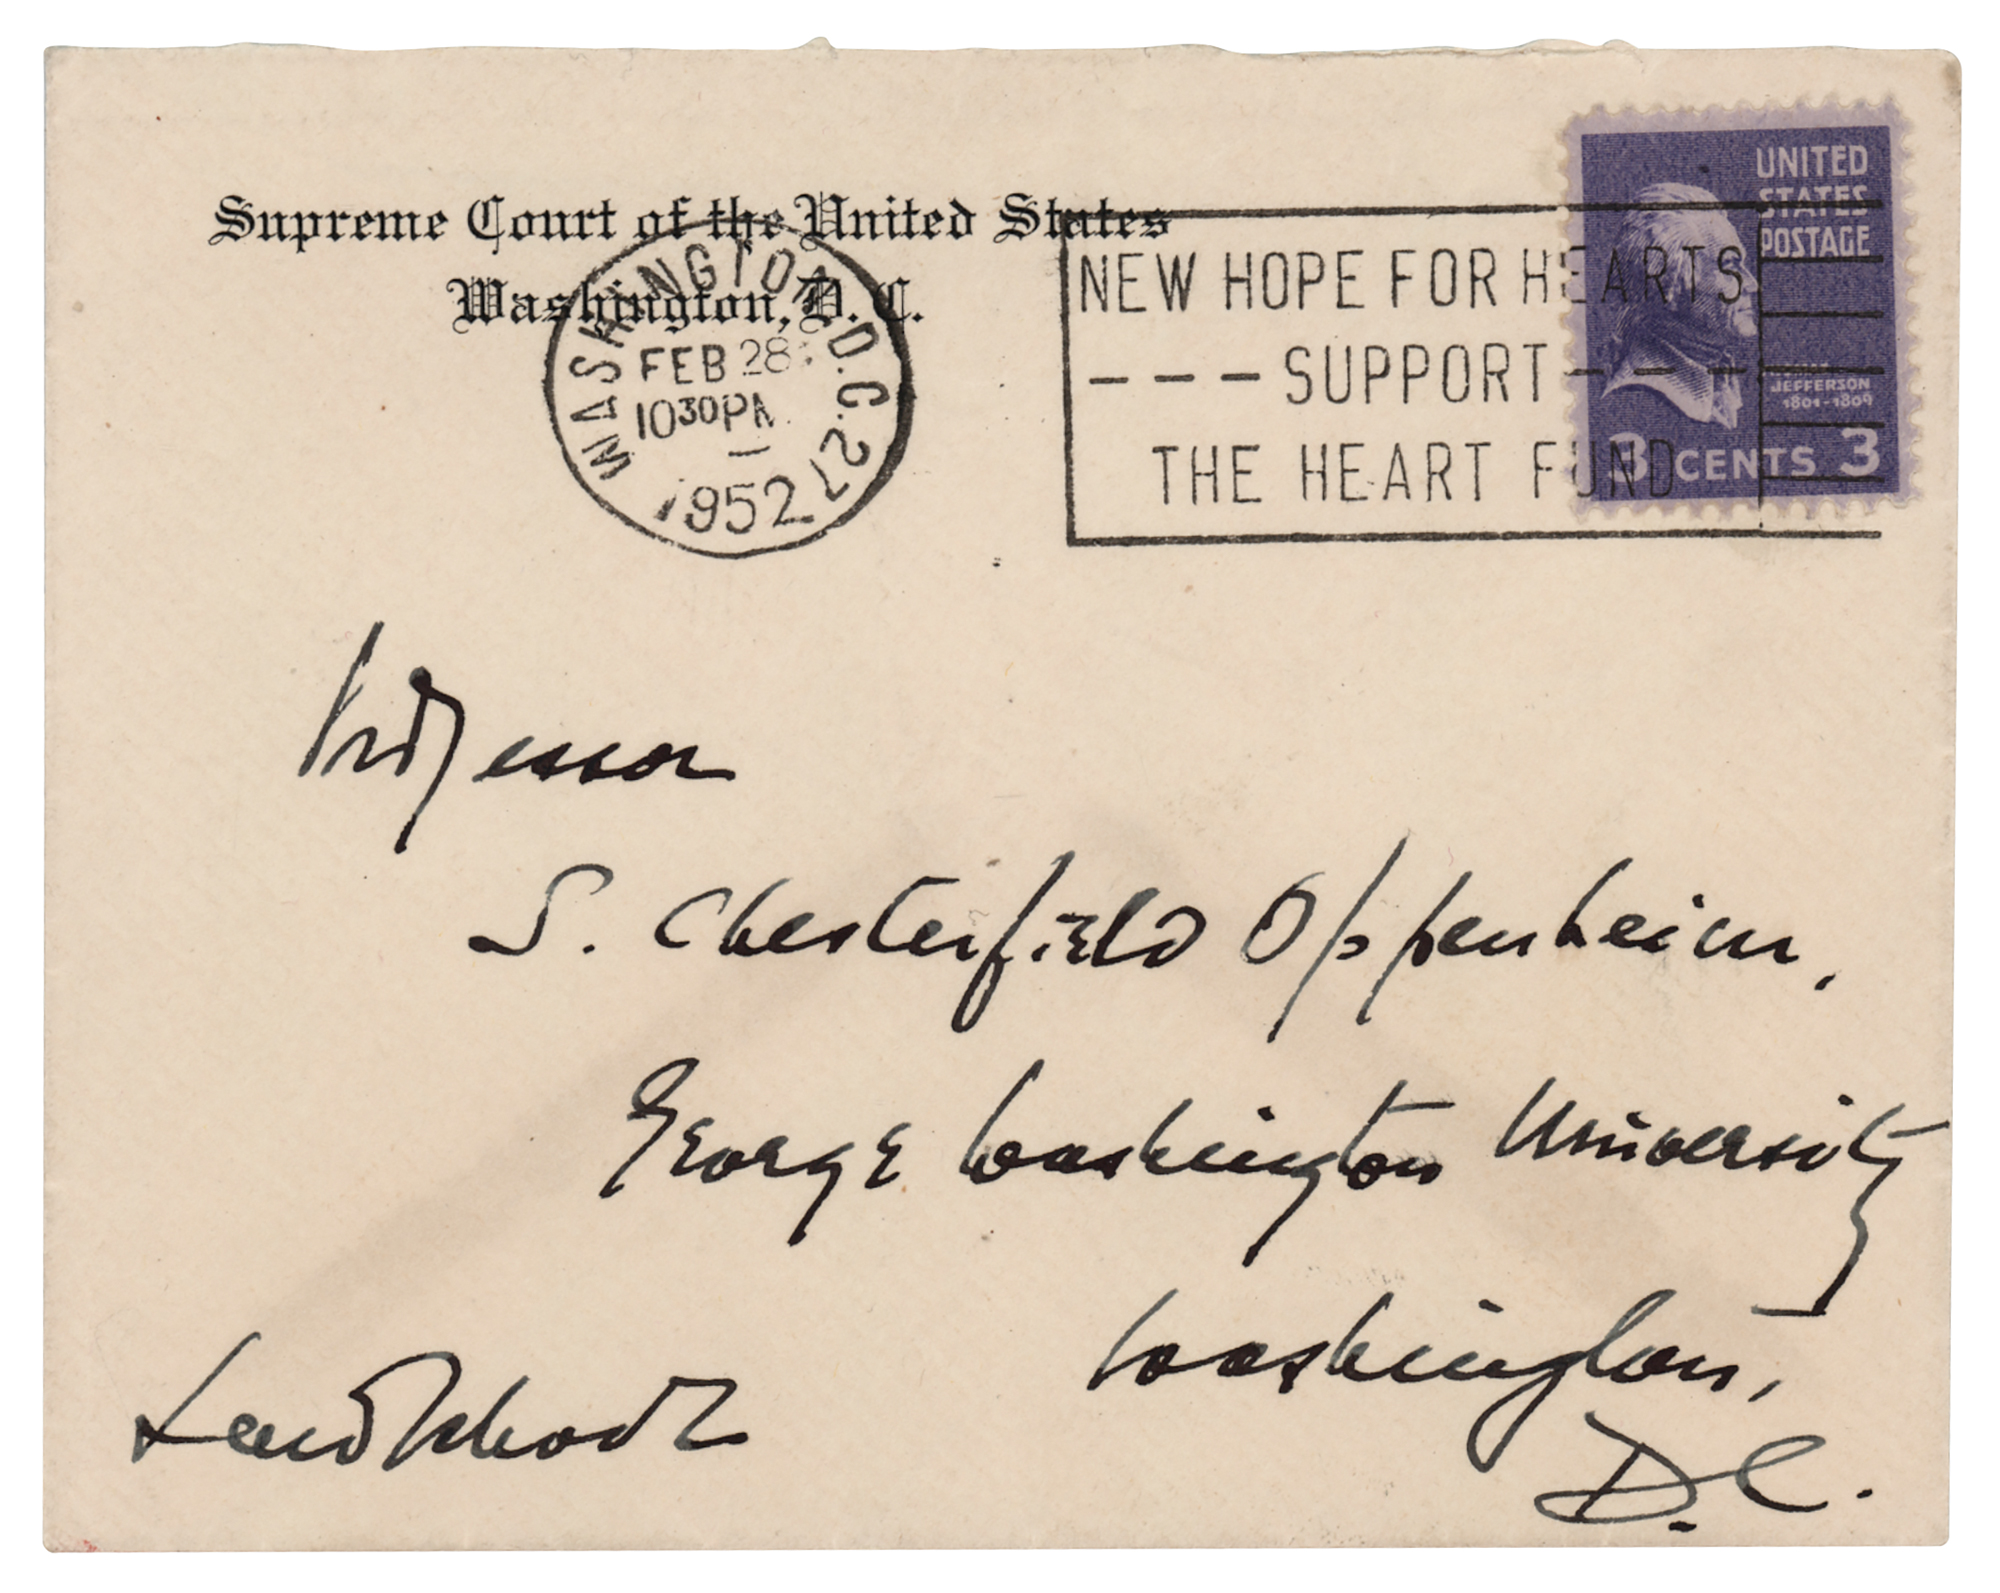 Supreme Court of the United States
Washington, D. C.
WASHINGTON, D.C. 27
FEB 28
10 30 PM
1952
NEW HOPE FOR HEARTS
--- SUPPORT ---
THE HEART FUND
UNITED
STATES
POSTAGE
JEFFERSON
1801-1809
3 CENTS 3
Professor
S. Chesterfield Oppenheim,
George Washington University
Washington,
D.C.